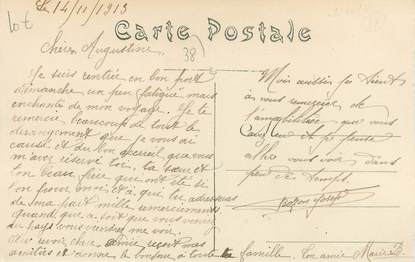 Le 14/11/1913
Carte Postale
Lot
38
Chère Augustine
Je suis rentrée en bon port
dimanche un peu fatiguée mais
enchanté de mon voyage. Je te
remercie beaucoup de tout le
dérangement que je vous ai
causé et du bon accueil que vous
m'avez réservé toi, ta sœur et
ton beau frère qui ont été si
bon pour moi et à qui tu adresseras
de ma part mille remerciements.
Quand que ce soit que vous venez
du pays vous viendrez me voir.
Au revoir chère amie reçoit mes
amitiés et donne le bonjour à toute la famille. Ton amie Marie B.
Moi aussi je tient
à vous remercier de
l'amabilité que vous
et je pense
aller vous voir dans
peu de temps.